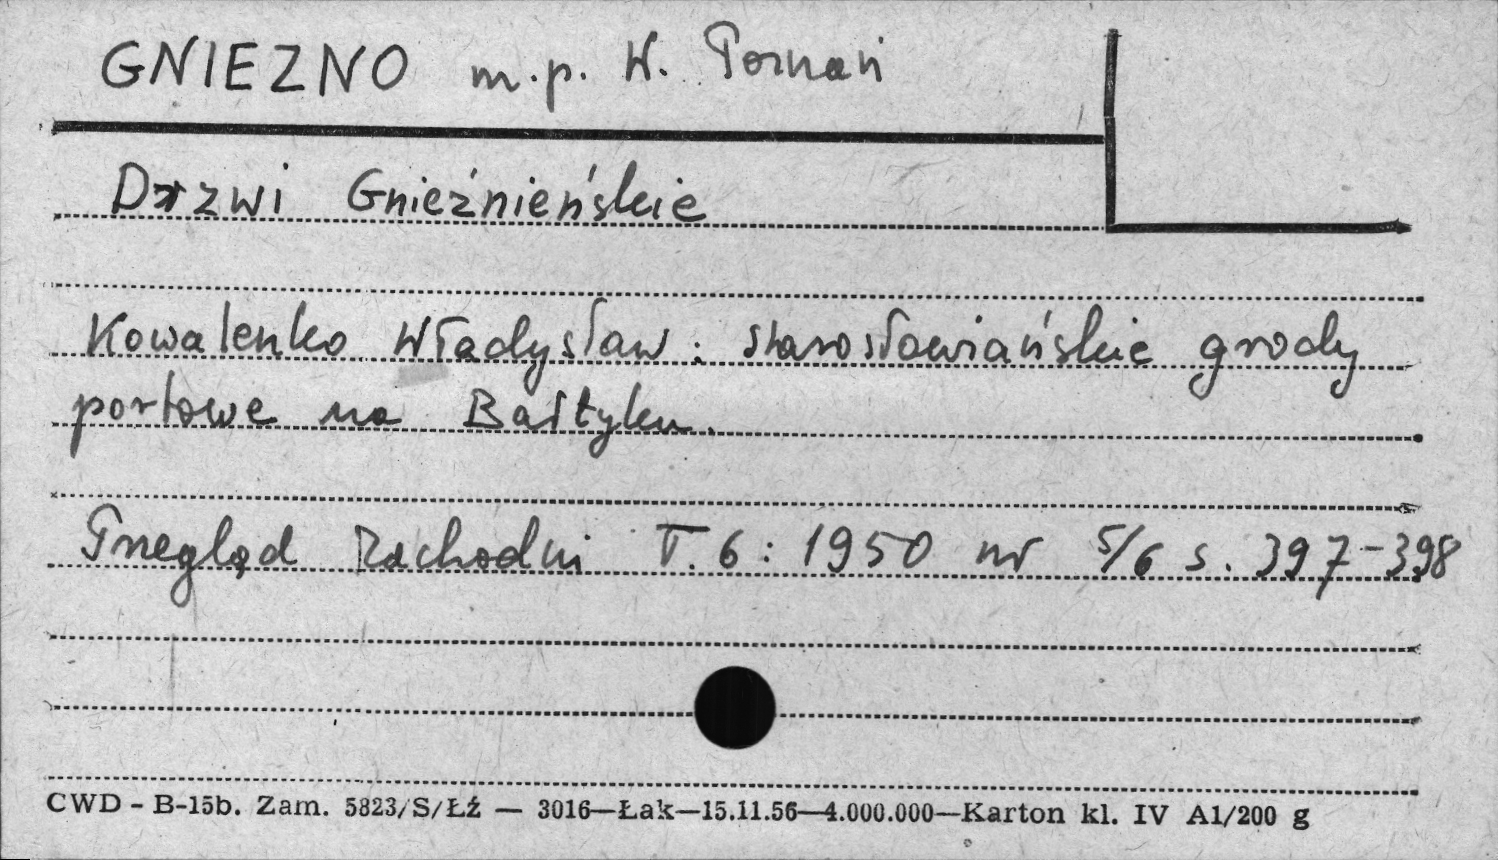 GNIEZNO m.p. W. Poznań
Drzwi Gnieźnieńskie
Kowalenko Władysław: Starosłowiańskie grody
portowe na Bałtyku.
Przegląd Zachodni T. 6: 1950 nr 5/6 s. 397-398
CWD - B-15b. Zam. 5823/S/ŁŹ — 3016—Łak—15.11.56—4.000.000—Karton kl. IV A1/200 g